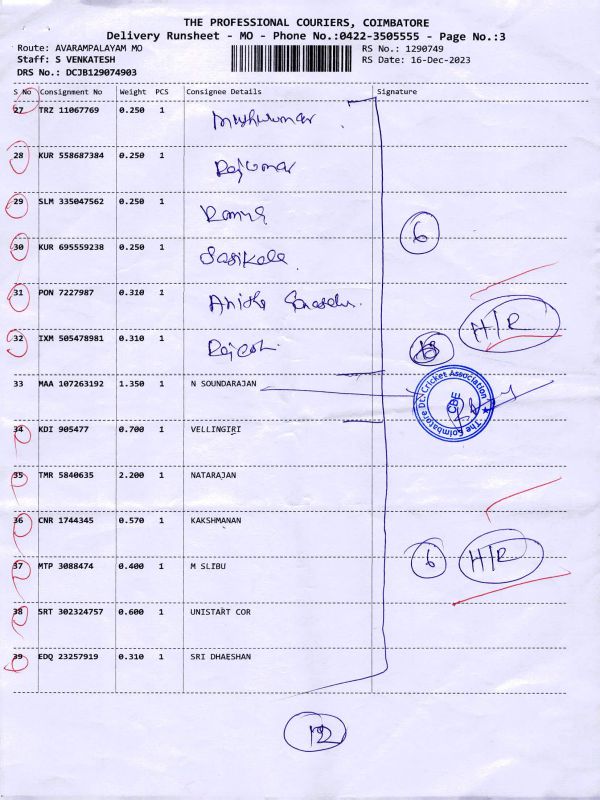 THE PROFESSIONAL COURIERS, COIMBATORE
Delivery Runsheet - MO - Phone No.:0422-3505555 - Page No.:3
Route: AVARAMPALAYAM MO RS No.: 1290749
Staff: S VENKATESH RS Date: 16-Dec-2023
DRS No.: DCJB129074903
S No Consignment No Weight PCS Consignee Details Signature
27 TRZ 11067769 0.250 1
28 KUR 558687384 0.250 1 Rajkumar
29 SLM 335047562 0.250 1 Ramya
30 KUR 695559238 0.250 1 Sasikala
6
31 PON 7227987 0.310 1 Anitha
H/R
32 IXM 505478981 0.310 1 Rajesh
33 MAA 107263192 1.350 1 N SOUNDARAJAN
The Coimbatore Dt. Cricket Association
CBE
34 KDI 905477 0.700 1 VELLINGIRI
35 TMR 5840635 2.200 1 NATARAJAN
36 CNR 1744345 0.570 1 KAKSHMANAN
6 H/R
37 MTP 3088474 0.400 1 M SLIBU
38 SRT 302324757 0.600 1 UNISTART COR
39 EDQ 23257919 0.310 1 SRI DHAESHAN
12